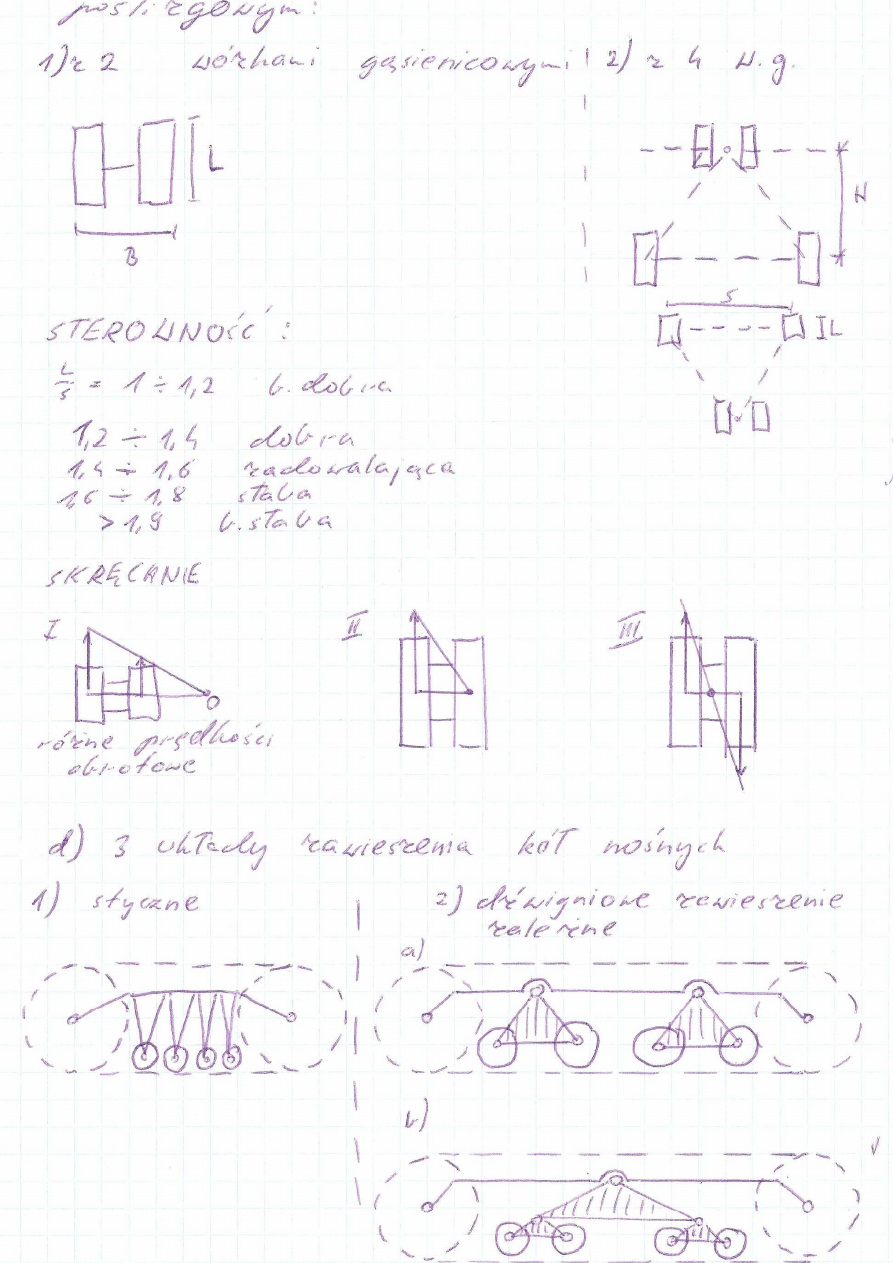 poślizgowym:
1) z 2 wózkami gąsienicowymi
2) z 4 w.g.
L
B
W
S
L
STEROWNOŚĆ:
L/s = 1 ÷ 1,2 b. dobra
1,2 ÷ 1,4 dobra
1,4 ÷ 1,6 zadowalająca
1,6 ÷ 1,8 słaba
> 1,9 b. słaba
SKRĘCANIE
I
II
III
O
różne prędkości
obrotowe
d) 3 układy zawieszenia kół nośnych
1) styczne
2) dźwigniowe zawieszenie
zależne
a)
b)